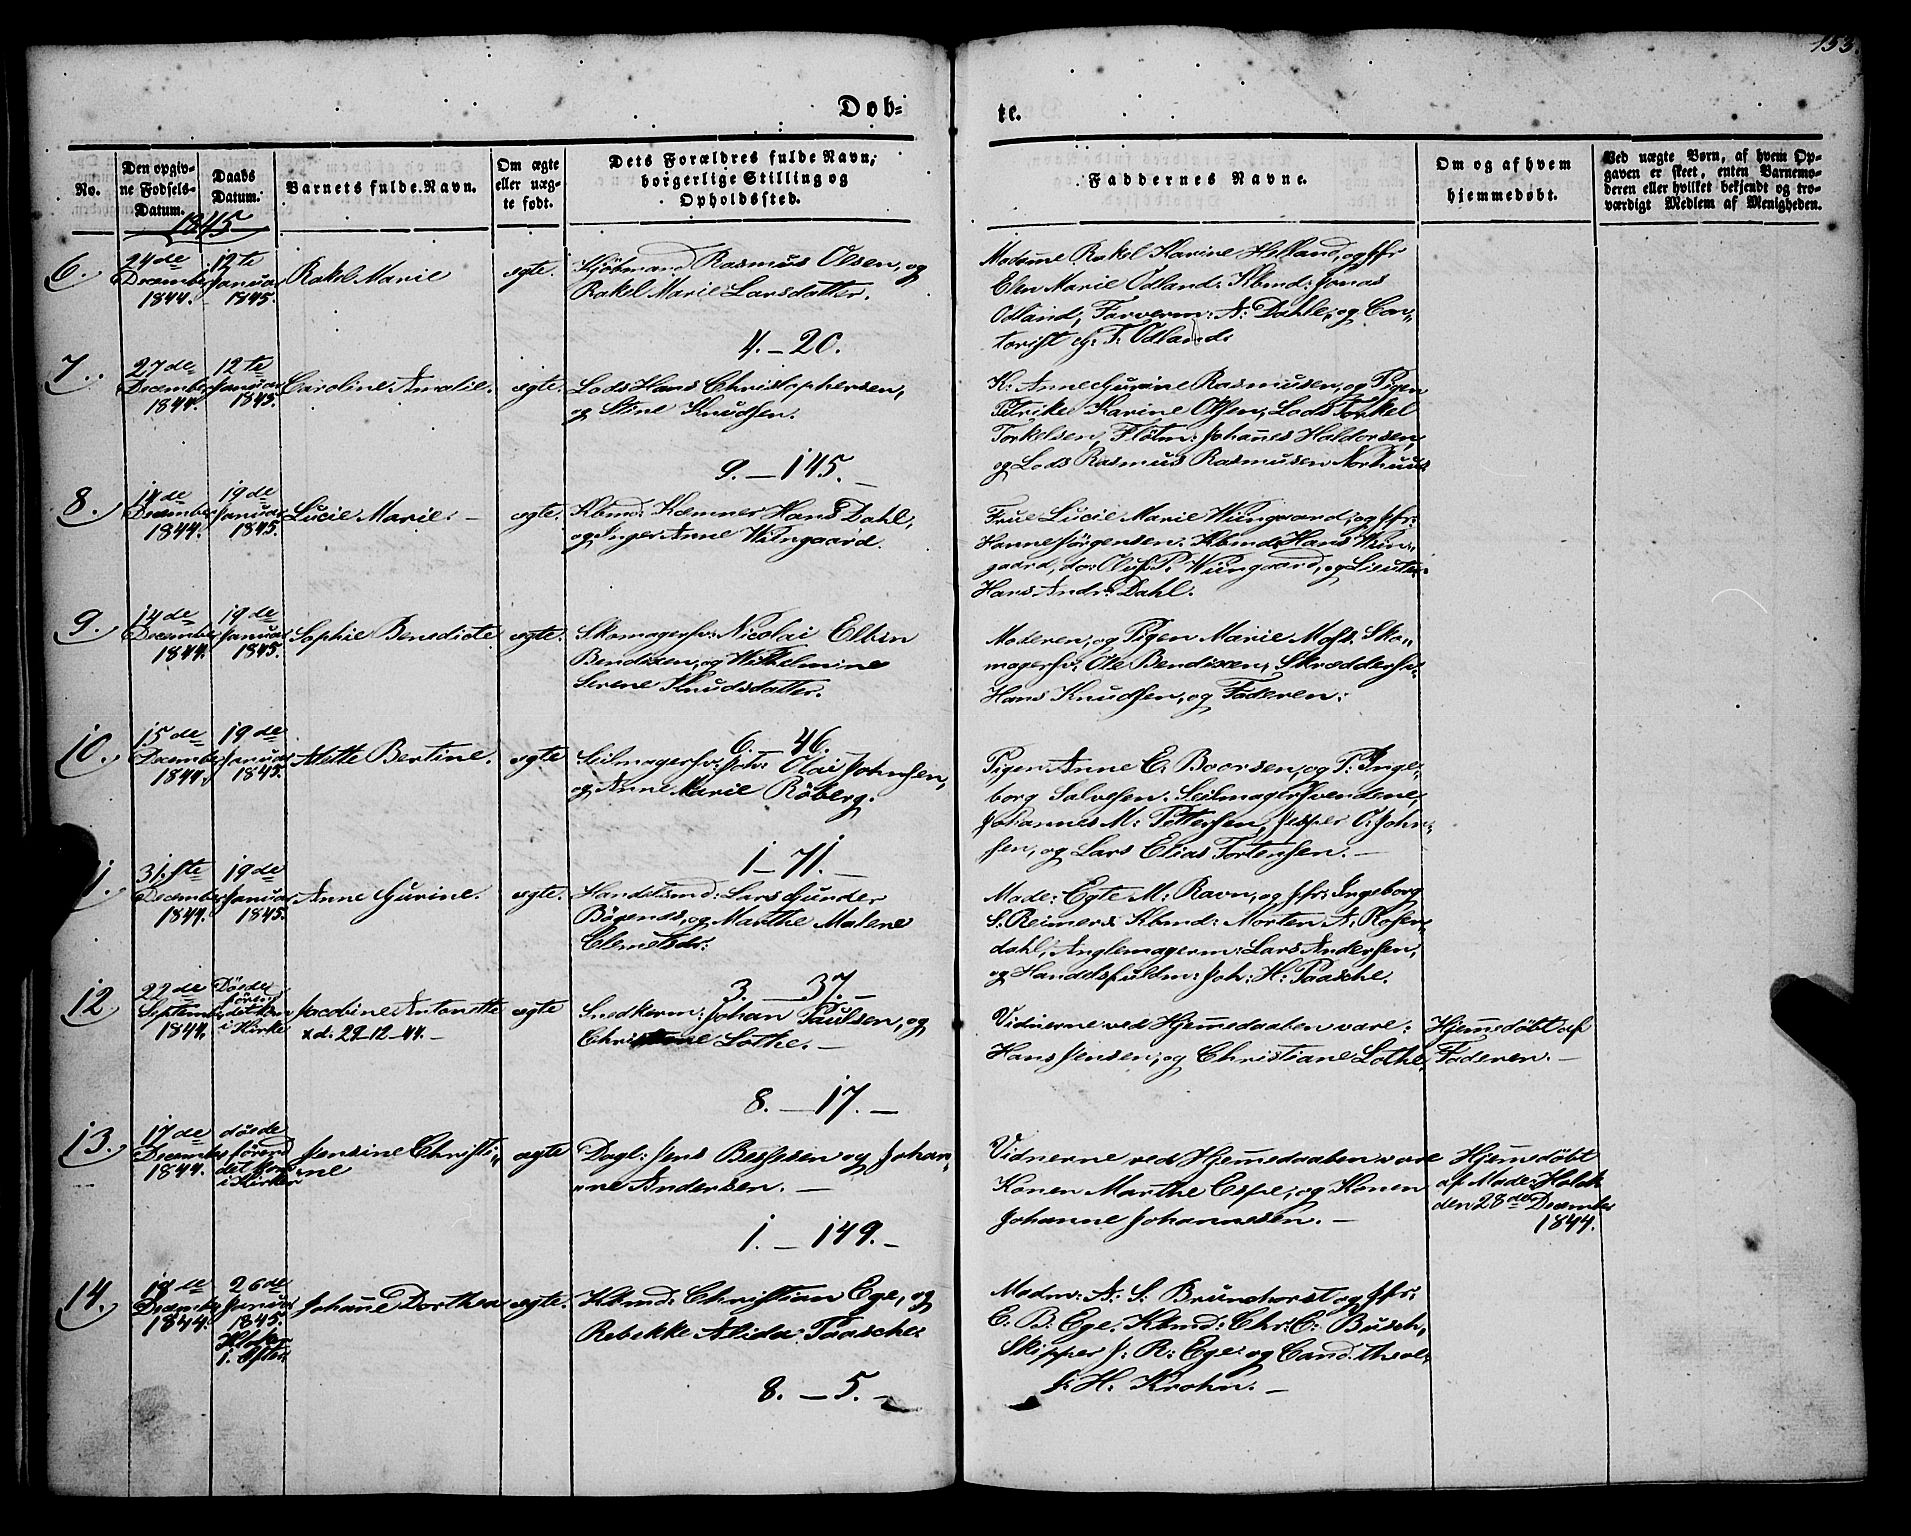 153.
Døb=
te.
No.
Den opgiv-
ne Fødsels-
Datum.
Daabs
Datum.
Barnets fulde Navn.
Om ægte
eller uæg-
te født.
Dets Forældres fulde Navn,
borgerlige Stilling og
Opholdssted.
Faddernes Navne.
Om og af hvem
hjemmedøbt.
Ved uægte Børn, af hvem Op-
gaven er skeet, enten Barnemo-
deren eller hvilket bekjendt og tro-
værdigt Medlem af Menigheden.
1845
6.
24de
December
1844.
12te
Januar
1845.
Rakel Marie
ægte.
Kjöbmand Rasmus Olsen, og
Rakel Marie Larsdatter.
4. – 20.
Madame Rakel Karine Helland, og Jfr
Elen Marie Odland. Kbmd: Jonas
Odland, Farverm: A. Dahle, og Con-
torist T. Odland.
7.
27de
December
1844.
12te
Januar
1845.
Caroline Amalie.
ægte.
Lods Hans Christophersen,
og Stine Knudsen.
9. – 145. –
K: Anne Gurine Rasmusen, og Pigen
Petrike Karine Olsen, Lods Torkel
Torkelsen, Flötm: Johannes Haldorsen,
og Lods Rasmus Rasmusen Norhuus
8.
14de
December
1844.
19de
Januar
1845.
Lucie Marie. –
ægte.
Kbmd: Kæmner Hans Dahl,
og Inger Anne Wiingaard.
Frue Lucie Marie Wiingaard, og Jfr:
Hanne Jörgensen. Kbmd: Hans Wiin-
gaard, do: Oluf P. Wiingaard, og Lieuten:
Hans Andr: Dahl.
9.
14de
December
1844.
19de
Januar
1845.
Sophie Benedicte
ægte.
Skomagersv: Nicolai Elbin
Bendixen, og Wilhelmine
Serene Knudsdatter.
6. 46.
Moderen, og Pigen Marie Moss. Sko-
magersv: Ole Bendixen, Skræddersv:
Hans Knudsen, og Faderen.
10.
15de
December
1844.
19de
Januar
1845.
Alette Bertine.
ægte
Seilmagersv: Joh: Olai Johnsen,
og Anne Marie Röberg.
1 – 71. –
Pigen Anne E. Boorsen, og P: Inge-
borg Salvesen. Seilmagersvendene,
Johannes M: Pettersen, Jesper O. John-
sen, og Lars Elias Tortensen. –
1.
31.ste
December
1844.
19de
Januar
1845.
Anne Gurine.
ægte.
Handelsmd: Lars Gunder
Börends, og Marthe Malene
Clemetsdr:
3. – 37. –
Made: Egte M: Ravn, og Jfr: Ingeborg
S. Reimers. Kbmd: Morten A. Rosen-
dahl, Anglemagerm: Lars Andersen,
og Handelsfuldm: Joh: H: Paasche.
12
22de
Septembr
1844.
Döede
förend
det kom
i Kirke
Jacobine Antonette
x d: 29-12-44. –
ægte
Snedkerm: Johan Paulsen, og
Christiane Lothe. –
8. – 17. –
Vidnerne ved Hjemmedaaben vare:
Hans Jensen, og Christiane Lothe.
Hjemmedöbt af
Faderen. –
13.
17de
December
1844.
döede
förend
det kom
i Kirken
Jensine Christi-
ne
ægte
Dagl: Jens Bessesen og Johan-
ne Andersen. –
1. – 149. –
Vidnerne ved Hjemmedaaben vare
Konen Marthe Espe, og Konen
Johanne Johannesen. –
Hjemmedöbt
af Made: Holck
den 28de December
1844.
14.
18de
December
1844.
26de
Januar
1845.
Johanne Dorthea
ægte.
Kbmd: Christian Ege, og
Rebekke Alida Paasche.
8. – 5. –
Madm: A. S. Brunchorst og Jfr:
C. B. Ege. Kbmd: Chr: C. Busch,
Skipper J. R. Ege, og Cand. theol:
J. H. Krohn. –